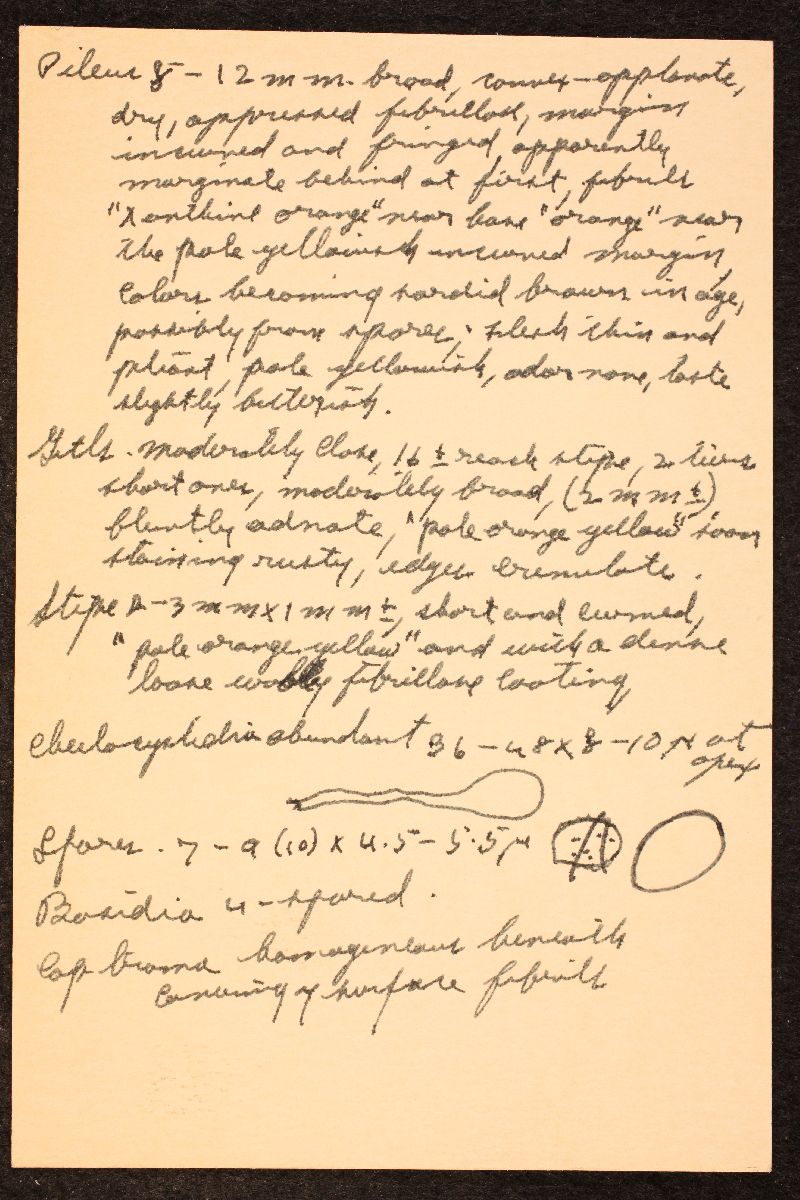 Pileus 5 - 12 mm. broad, convex-applanate,
dry, appressed fibrillose, margin
incurved and fringed apparently
marginate behind at first, fibrils
"Xanthine orange" near base "orange" near
the pale yellowish incurved margin,
colors becoming sordid brown in age,
possibly from spores; flesh thin and
pliant, pale yellowish, odor none, taste
slightly bitterish.
Gills. moderately close, 16 ± reach stipe, 2 tiers
short ones, moderately broad, (2 mm ±)
bluntly adnate, "pale orange yellow" soon
staining rusty, edges crenulate.
Stipe 2-3 mm x 1 mm ±, short and curved,
"pale orange yellow" and with a dense
loose woolly fibrillose coating
Cheilocystidia abundant 36 - 48 x 8 - 10 µ at
apex
Spores. 7 - 9 (10) x 4.5 - 5.5 µ
Basidia 4-spored.
Cap trama homogeneous beneath
covering of surface fibrils